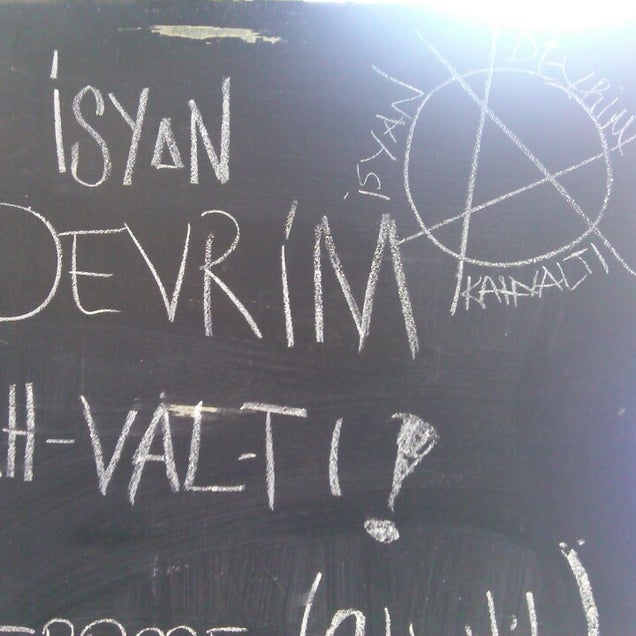 İSYAN
DEVRİM
H-VAL-TI!
İSYAN
DEVRİM
KAHVALTI